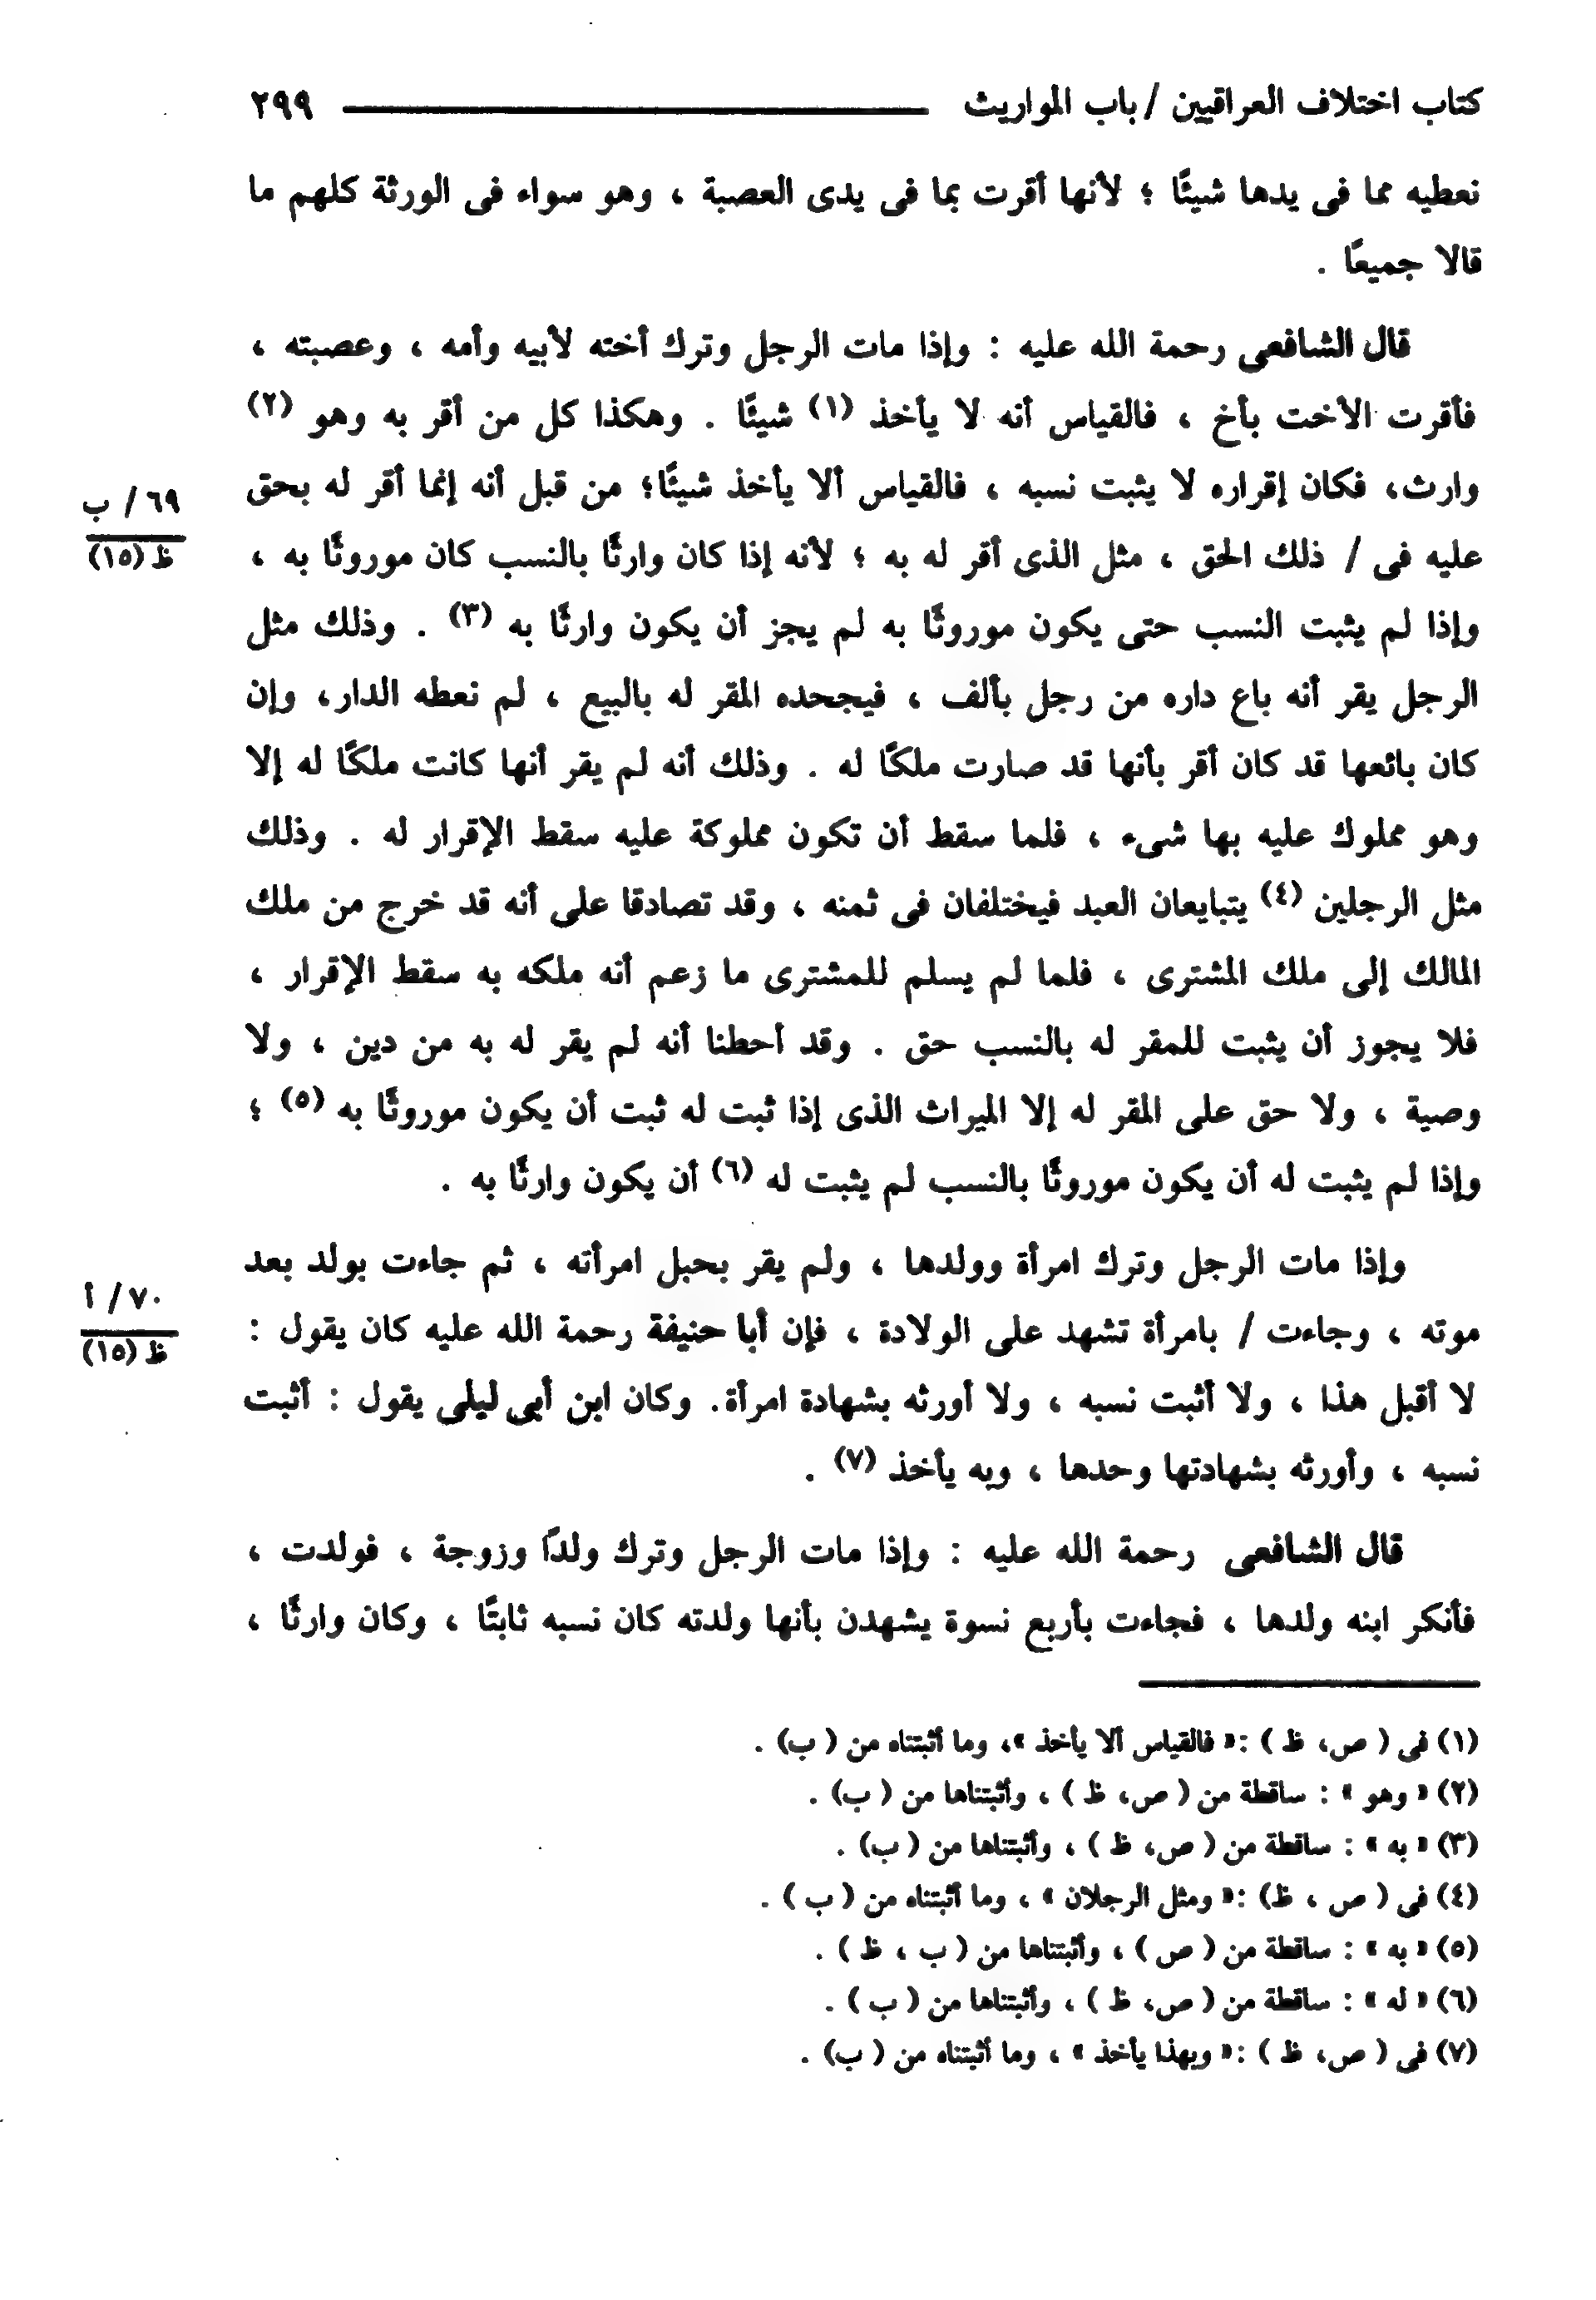 كتاب اختلاف العراقيين / باب المواريث ٢٩٩
نعطيه مما فى يدها شيئًا ؛ لأنها أقرت بما فى يدى العصبة ، وهو سواء فى الورثة كلهم ما
قالا جميعًا .
قال الشافعى رحمة الله عليه : وإذا مات الرجل وترك أخته لأبيه وأمه ، وعصبته ،
فأقرت الأخت بأخ ، فالقياس أنه لا يأخذ (١) شيئًا . وهكذا كل من أقر به وهو (٢)
وارث، فكان إقراره لا يثبت نسبه ، فالقياس ألا يأخذ شيئًا؛ من قبل أنه إنما أقر له بحق
٦٩ / ب
ظ (١٥)
عليه فى / ذلك الحق ، مثل الذى أقر له به ؛ لأنه إذا كان وارثًا بالنسب كان موروثًا به ،
وإذا لم يثبت النسب حتى يكون موروثًا به لم يجز أن يكون وارثًا به (٣) . وذلك مثل
الرجل يقر أنه باع داره من رجل بألف ، فيجحده المقر له بالبيع ، لم نعطه الدار، وإن
كان بائعها قد كان أقر بأنها قد صارت ملكًا له . وذلك أنه لم يقر أنها كانت ملكًا له إلا
وهو مملوك عليه بها شىء ، فلما سقط أن تكون مملوكة عليه سقط الإقرار له . وذلك
مثل الرجلين (٤) يتبايعان العبد فيختلفان فى ثمنه ، وقد تصادقا على أنه قد خرج من ملك
المالك إلى ملك المشترى ، فلما لم يسلم للمشترى ما زعم أنه ملكه به سقط الإقرار ،
فلا يجوز أن يثبت للمقر له بالنسب حق . وقد أحطنا أنه لم يقر له به من دين ، ولا
وصية ، ولا حق على المقر له إلا الميراث الذى إذا ثبت له ثبت أن يكون موروثًا به (٥) ؛
وإذا لم يثبت له أن يكون موروثًا بالنسب لم يثبت له (٦) أن يكون وارثًا به .
وإذا مات الرجل وترك امرأة وولدها ، ولم يقر بحبل امرأته ، ثم جاءت بولد بعد
٧٠ / أ
ظ (١٥)
موته ، وجاءت / بامرأة تشهد على الولادة ، فإن أبا حنيفة رحمة الله عليه كان يقول :
لا أقبل هذا ، ولا أثبت نسبه ، ولا أورثه بشهادة امرأة. وكان ابن أبى ليلى يقول : أثبت
نسبه ، وأورثه بشهادتها وحدها ، وبه يأخذ (٧) .
قال الشافعى رحمة الله عليه : وإذا مات الرجل وترك ولدًا وزوجة ، فولدت ،
فأنكر ابنه ولدها ، فجاءت بأربع نسوة يشهدن بأنها ولدته كان نسبه ثابتًا ، وكان وارثًا ،
(١) فى ( ص، ظ ) :« فالقياس ألا يأخذ »، وما أثبتناه من ( ب) .
(٢) « وهو » : ساقطة من ( ص، ظ ) ، وأثبتناها من ( ب) .
(٣) « به » : ساقطة من ( ص، ظ ) ، وأثبتناها من ( ب) .
(٤) فى ( ص ، ظ) :« ومثل الرجلان » ، وما أثبتناه من ( ب ) .
(٥) « به » : ساقطة من ( ص ) ، وأثبتناها من ( ب ، ظ ) .
(٦) « له » : ساقطة من ( ص، ظ ) ، وأثبتناها من ( ب ) .
(٧) فى ( ص، ظ ) :« وبهذا يأخذ » ، وما أثبتناه من ( ب) .